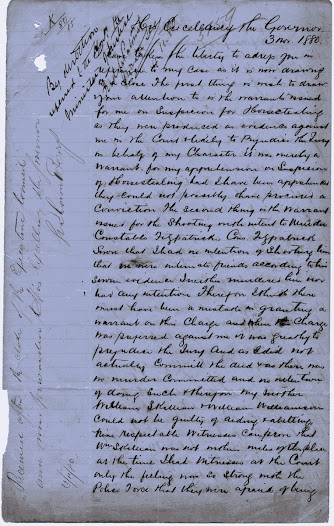 His Excellency the Governor
3 Nov. 1880.
I have taken the liberty to adress you in
reference to my case as it is now drawing
to a close The first thing is wish to draw
your attention to is the warrants issued
for me on Suspicion for Horsestealing
as they were produced as evidence against
me in the Court & likley to Prejudice the Jury
in behalf of my Character it was merely a
warrant for my apprehension on Suspicion
of Horsestealing had I have been apprehended
they could not possibly have procured a
Conviction The Second thing is the Warrant
issued for the Shooting with intent to Murder
Constable Fitzpatrick Con. Fitzpatrick
Sworn that I had no intention of Shooting him
that we were intimate friends according to his
Sworn evidence I neither murdered him nor
had any intention Therefore I think there
must have been a mistake in granting a
warrant on this Charge and the Charge
was preferred against me it was greatly to
prejudice the Jury And as I did not
actually Committ the deed & as there was
no murder Committed and no intention
of doing Such Therefore my Mother
William Skillian & William Williamson
Could not be guilty of aiding & abetting
Nine respectable Witnesses Can prove that
Wm Skillian was not within miles of the place
at the time I had Witnesses at the Court
only the feeling was So Strong with the
Police Force that they were afraid of being
By direction
Received after the order of the Executive Council